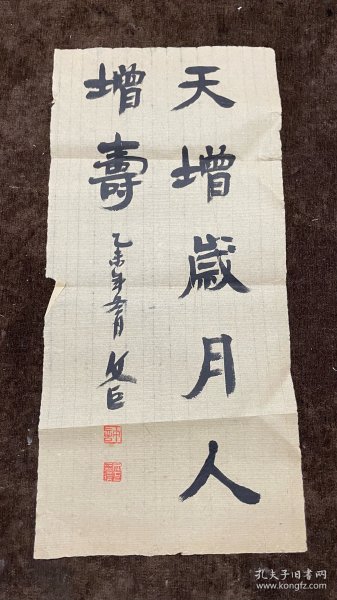 天增歲月人
增壽
乙未年
孔夫子旧书网
www.kongfz.com